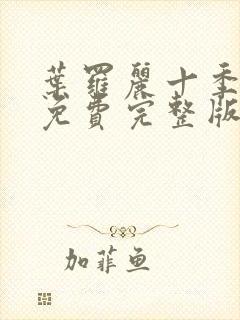 葉羅麗十季
免費完整版
加菲鱼